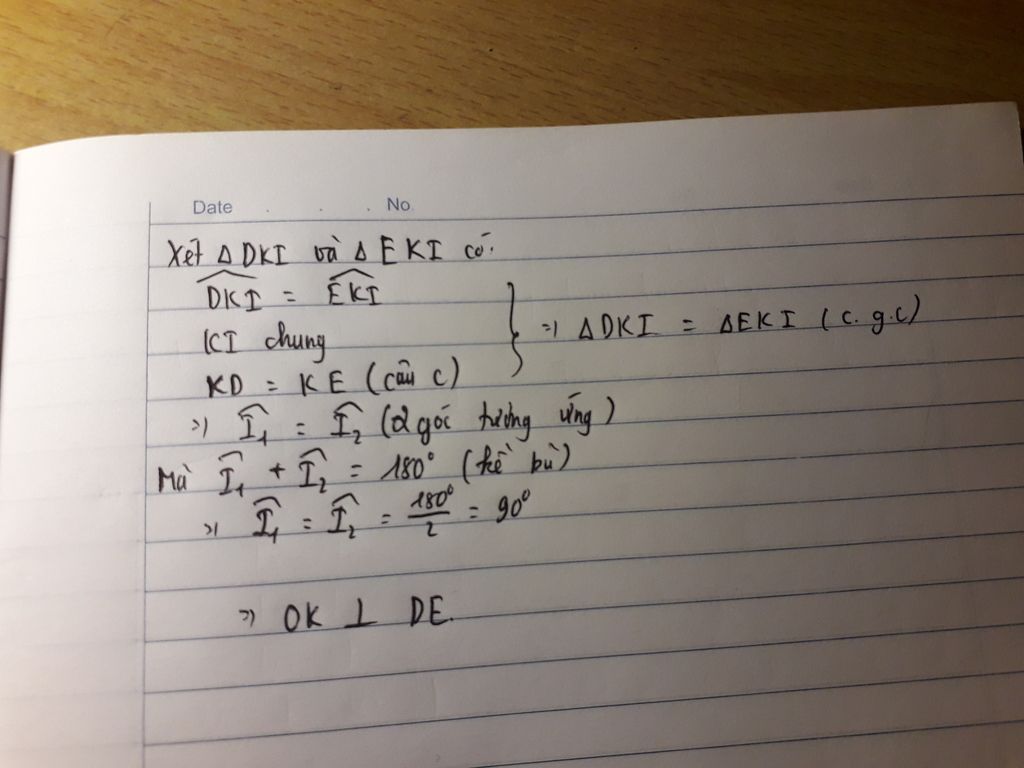 Date . . . No.
Xét Δ DKI và Δ EKI có:
DKI = EKI
KI chung
KD = KE (câu c)
=> ΔDKI = ΔEKI (c.g.c)
=> I₁ = I₂ (2 góc tương ứng)
Mà I₁ + I₂ = 180° (kề bù)
=> I₁ = I₂ = 180°/2 = 90°
=> OK ⊥ DE.